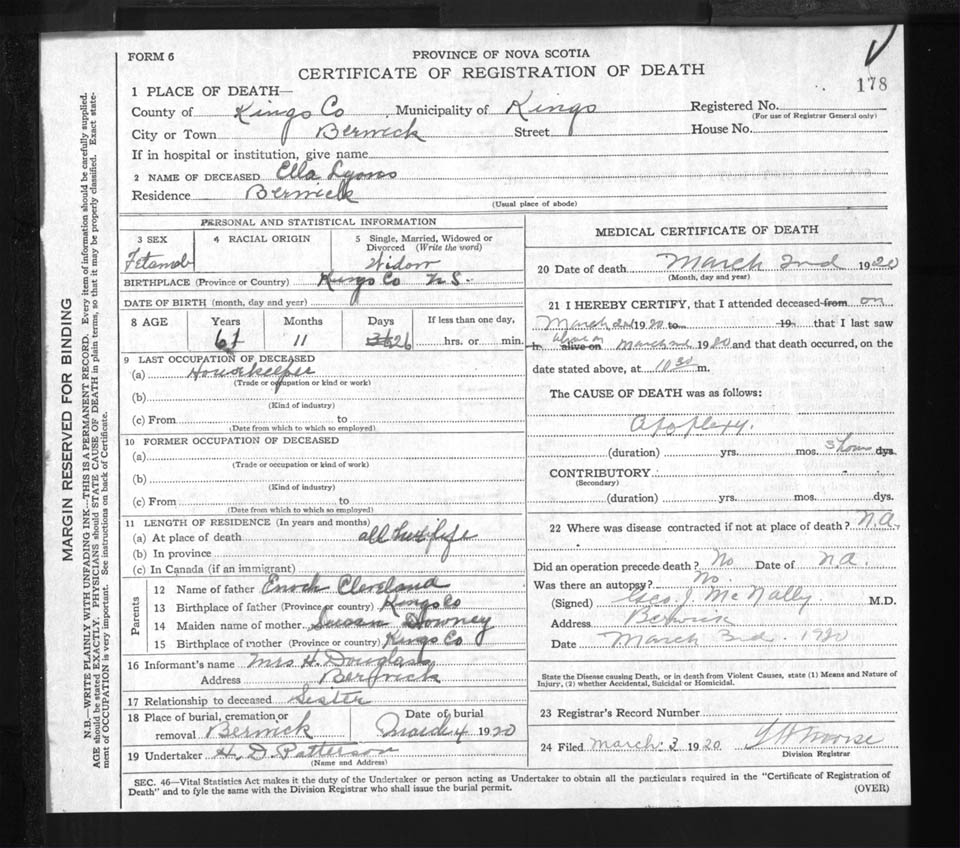 FORM 6
PROVINCE OF NOVA SCOTIA
CERTIFICATE OF REGISTRATION OF DEATH
178
1 PLACE OF DEATH—
County of Kings Co , Municipality of Kings Registered No.
(For use of Registrar General only)
City or Town Berwick Street House No.
If in hospital or institution, give name
2 NAME OF DECEASED Ella Lyons
Residence Berwick
(Usual place of abode)
PERSONAL AND STATISTICAL INFORMATION
3 SEX 4 RACIAL ORIGIN 5 Single, Married, Widowed or Divorced (Write the word)
Widow
BIRTHPLACE (Province or Country) Kings Co N.S.
DATE OF BIRTH (month, day and year)
8 AGE Years Months Days If less than one day,
11 26 hrs. or min.
9 LAST OCCUPATION OF DECEASED
(a) Housekeeper
(Trade or occupation or kind or work)
(b)
(Kind of industry)
(c) From to
(Date from which to which so employed)
10 FORMER OCCUPATION OF DECEASED
(a)
(Trade or occupation or kind of work)
(b)
(Kind of industry)
(c) From to
(Date from which to which so employed)
11 LENGTH OF RESIDENCE (In years and months)
(a) At place of death all her life
(b) In province
(c) In Canada (if an immigrant)
Parents
12 Name of father Enoch Cleveland
13 Birthplace of father (Province or country) Kings Co
14 Maiden name of mother Susan Downey
15 Birthplace of mother (Province or country) Kings Co
16 Informant's name Mrs H. Douglass
Address Berwick
17 Relationship to deceased Sister
18 Place of burial, cremation or removal Berwick Date of burial March 4 1920
19 Undertaker H. D. Patterson
(Name and Address)
MEDICAL CERTIFICATE OF DEATH
20 Date of death March 2nd 1920
(Month, day and year)
21 I HEREBY CERTIFY, that I attended deceased from on
March 2nd 1920 to 19 that I last saw
h alive on March 2nd 1920 and that death occurred, on the
date stated above, at 10 30 m.
The CAUSE OF DEATH was as follows:
Apoplexy.
(duration) yrs. mos. 3 hours dys.
CONTRIBUTORY
(Secondary)
(duration) yrs. mos. dys.
22 Where was disease contracted if not at place of death? N.A.
Did an operation precede death? No Date of N.A.
Was there an autopsy? No.
(Signed) Geo. J. McNally M.D.
Address Berwick
Date March 3rd. 1920
State the Disease causing Death, or in death from Violent Causes, state (1) Means and Nature of
Injury, (2) whether Accidental, Suicidal or Homicidal.
23 Registrar's Record Number
24 Filed March 3 1920
Division Registrar
SEC. 46—Vital Statistics Act makes it the duty of the Undertaker or person acting as Undertaker to obtain all the particulars required in the "Certificate of Registration of
Death" and to fyle the same with the Division Registrar who shall issue the burial permit. (OVER)
MARGIN RESERVED FOR BINDING
N.B.—WRITE PLAINLY WITH UNFADING INK—THIS IS A PERMANENT RECORD. Every item of information should be carefully supplied.
AGE should be stated EXACTLY. PHYSICIANS should STATE CAUSE OF DEATH in plain terms, so that it may be properly classified. Exact state-
ment of OCCUPATION is very important. See instructions on back of Certificate.